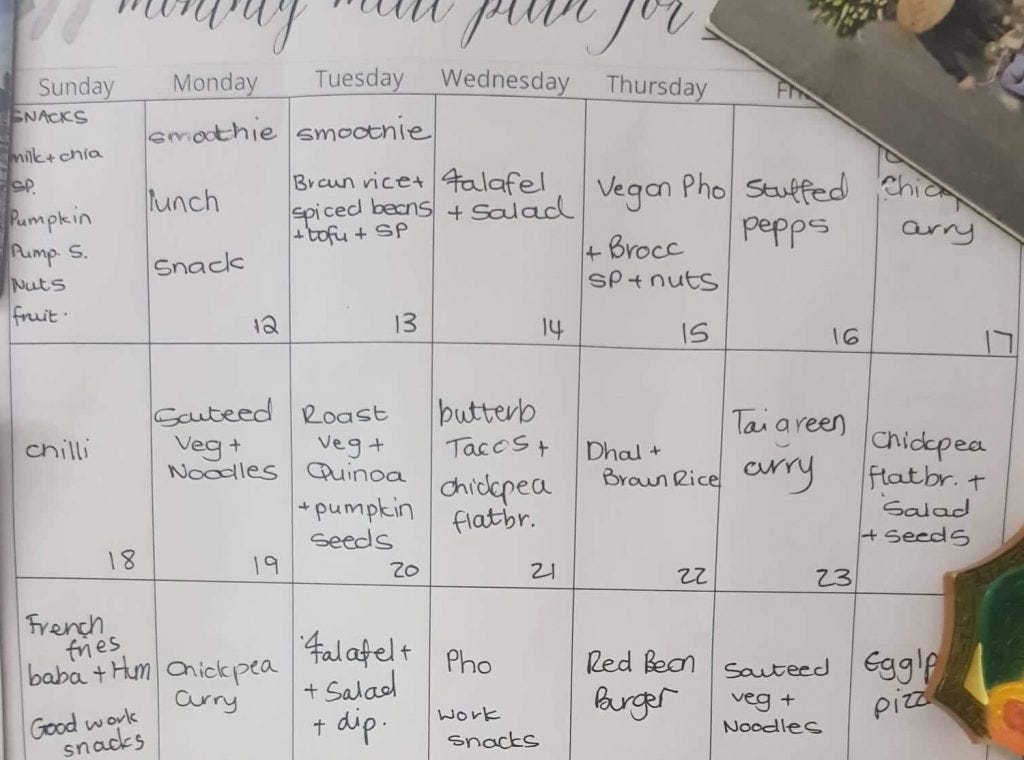 monthly meal plan for
Sunday
Monday
Tuesday
Wednesday
Thursday
SNACKS
milk + chia
SP.
Pumpkin
Pump. S.
Nuts
fruit.
smoothie
lunch
snack
12
smoothie
Brown rice +
spiced beans
+ tofu + SP
13
falafel
+ salad
14
Vegan Pho
+ Brocc
SP + nuts
15
Stuffed
pepps
16
curry
17
chilli
18
Sauteed
Veg +
Noodles
19
Roast
veg +
Quinoa
+ pumpkin
seeds
20
butterb
Tacos +
chickpea
flatbr.
21
Dhal +
Brown Rice
22
Tai green
curry
23
Chickpea
flatbr. +
Salad
+ seeds
French
fries
baba + Hum
Good work
snacks
Chickpea
curry
falafel +
+ Salad
+ dip.
Pho
work
snacks
Red Bean
Burger
Sauteed
veg +
Noodles